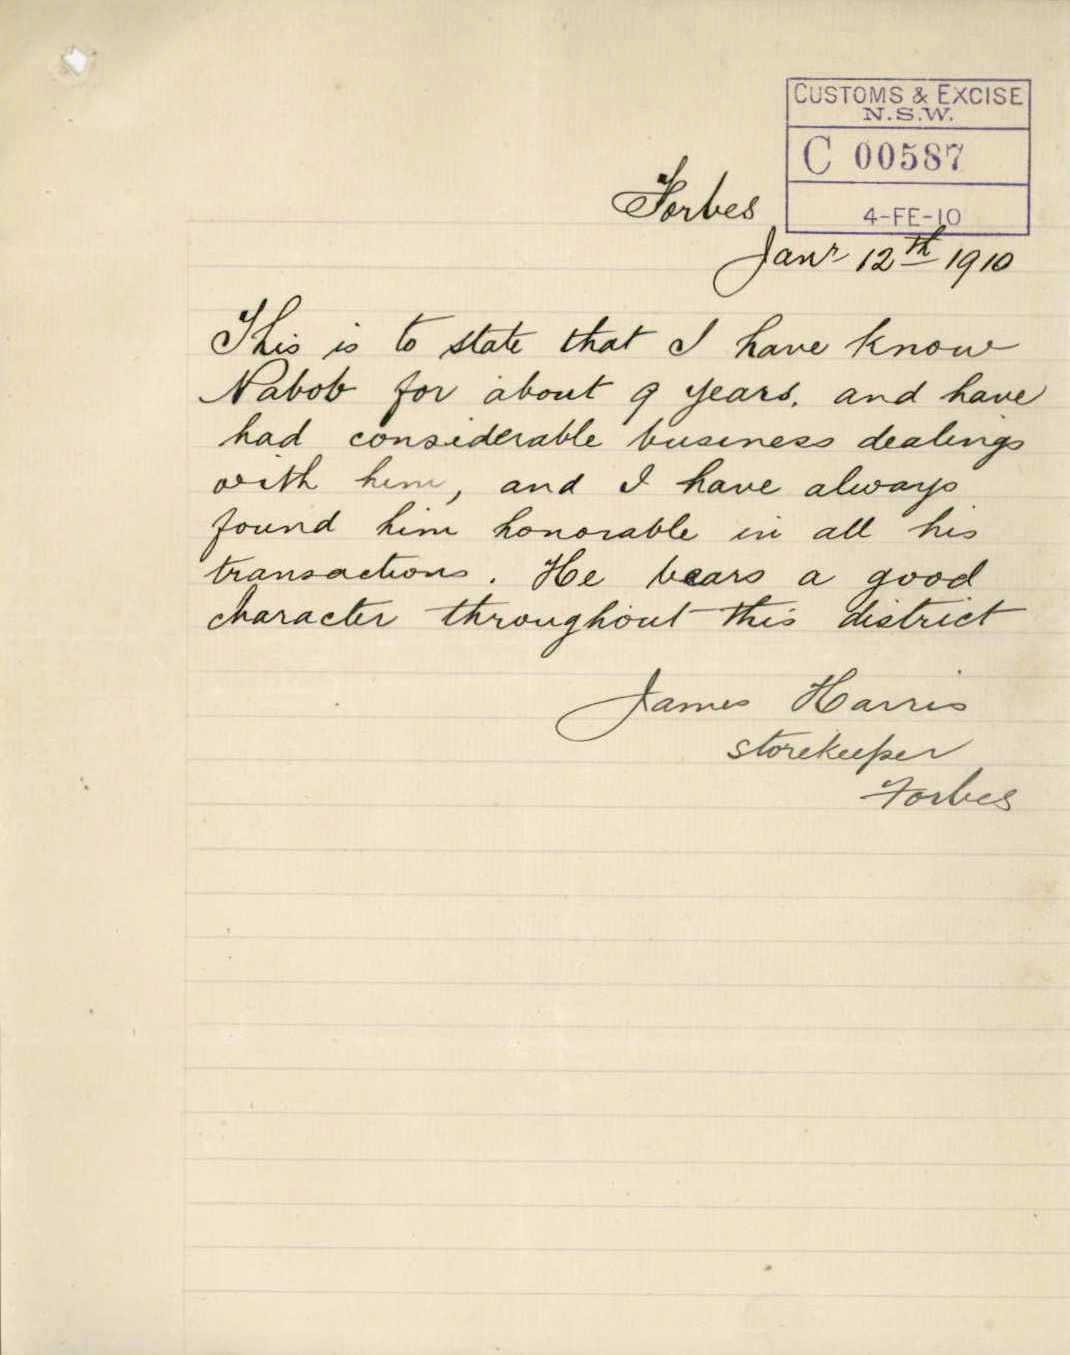 CUSTOMS & EXCISE
N.S.W.
C 00587
4-FE-10
Forbes
Janr 12th 1910
This is to state that I have know
Nabob for about 9 years. and have
had considerable business dealings
with him, and I have always
found him honorable in all his
transactions. He bears a good
character throughout this district
James Harris
storekeeper
Forbes